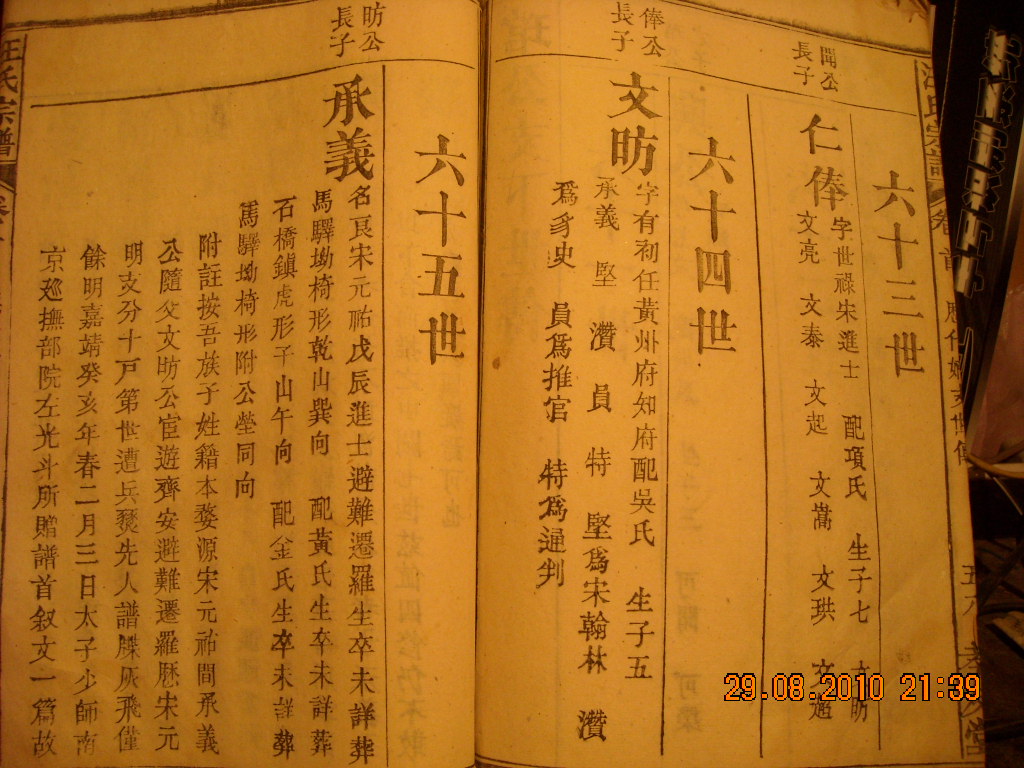 六十三世
聞公
長子
仁俸
字世祿宋進士 配項氏 生子七 文昉
文亮 文泰 文起 文嵩 文珙 文通
六十四世
俸公
長子
文昉
字有初任黃州府知府配吳氏 生子五
承義 堅 瓚 員 特 堅爲宋翰林 瓚
爲豸史 員爲推官 特爲通判
六十五世
昉公
長子
承義
名艮宋元祐戊辰進士避難遷羅生卒未詳葬
馬驛坳椅形乾山巽向 配黃氏生卒未詳葬
石橋鎮虎形子山午向 配金氏生卒未詳葬
馬驛坳椅形附公塋同向
附註按吾族子姓籍本婺源宋元祐間承義
公隨父文昉公宦遊齊安避難遷羅歷宋元
明支分十戸第世遭兵燹先人譜牒灰飛僅
餘明嘉靖癸亥年春二月三日太子少師南
京廵撫部院左光斗所贈譜首叙文一篇故
汪氏宗譜
29.08.2010 21:39